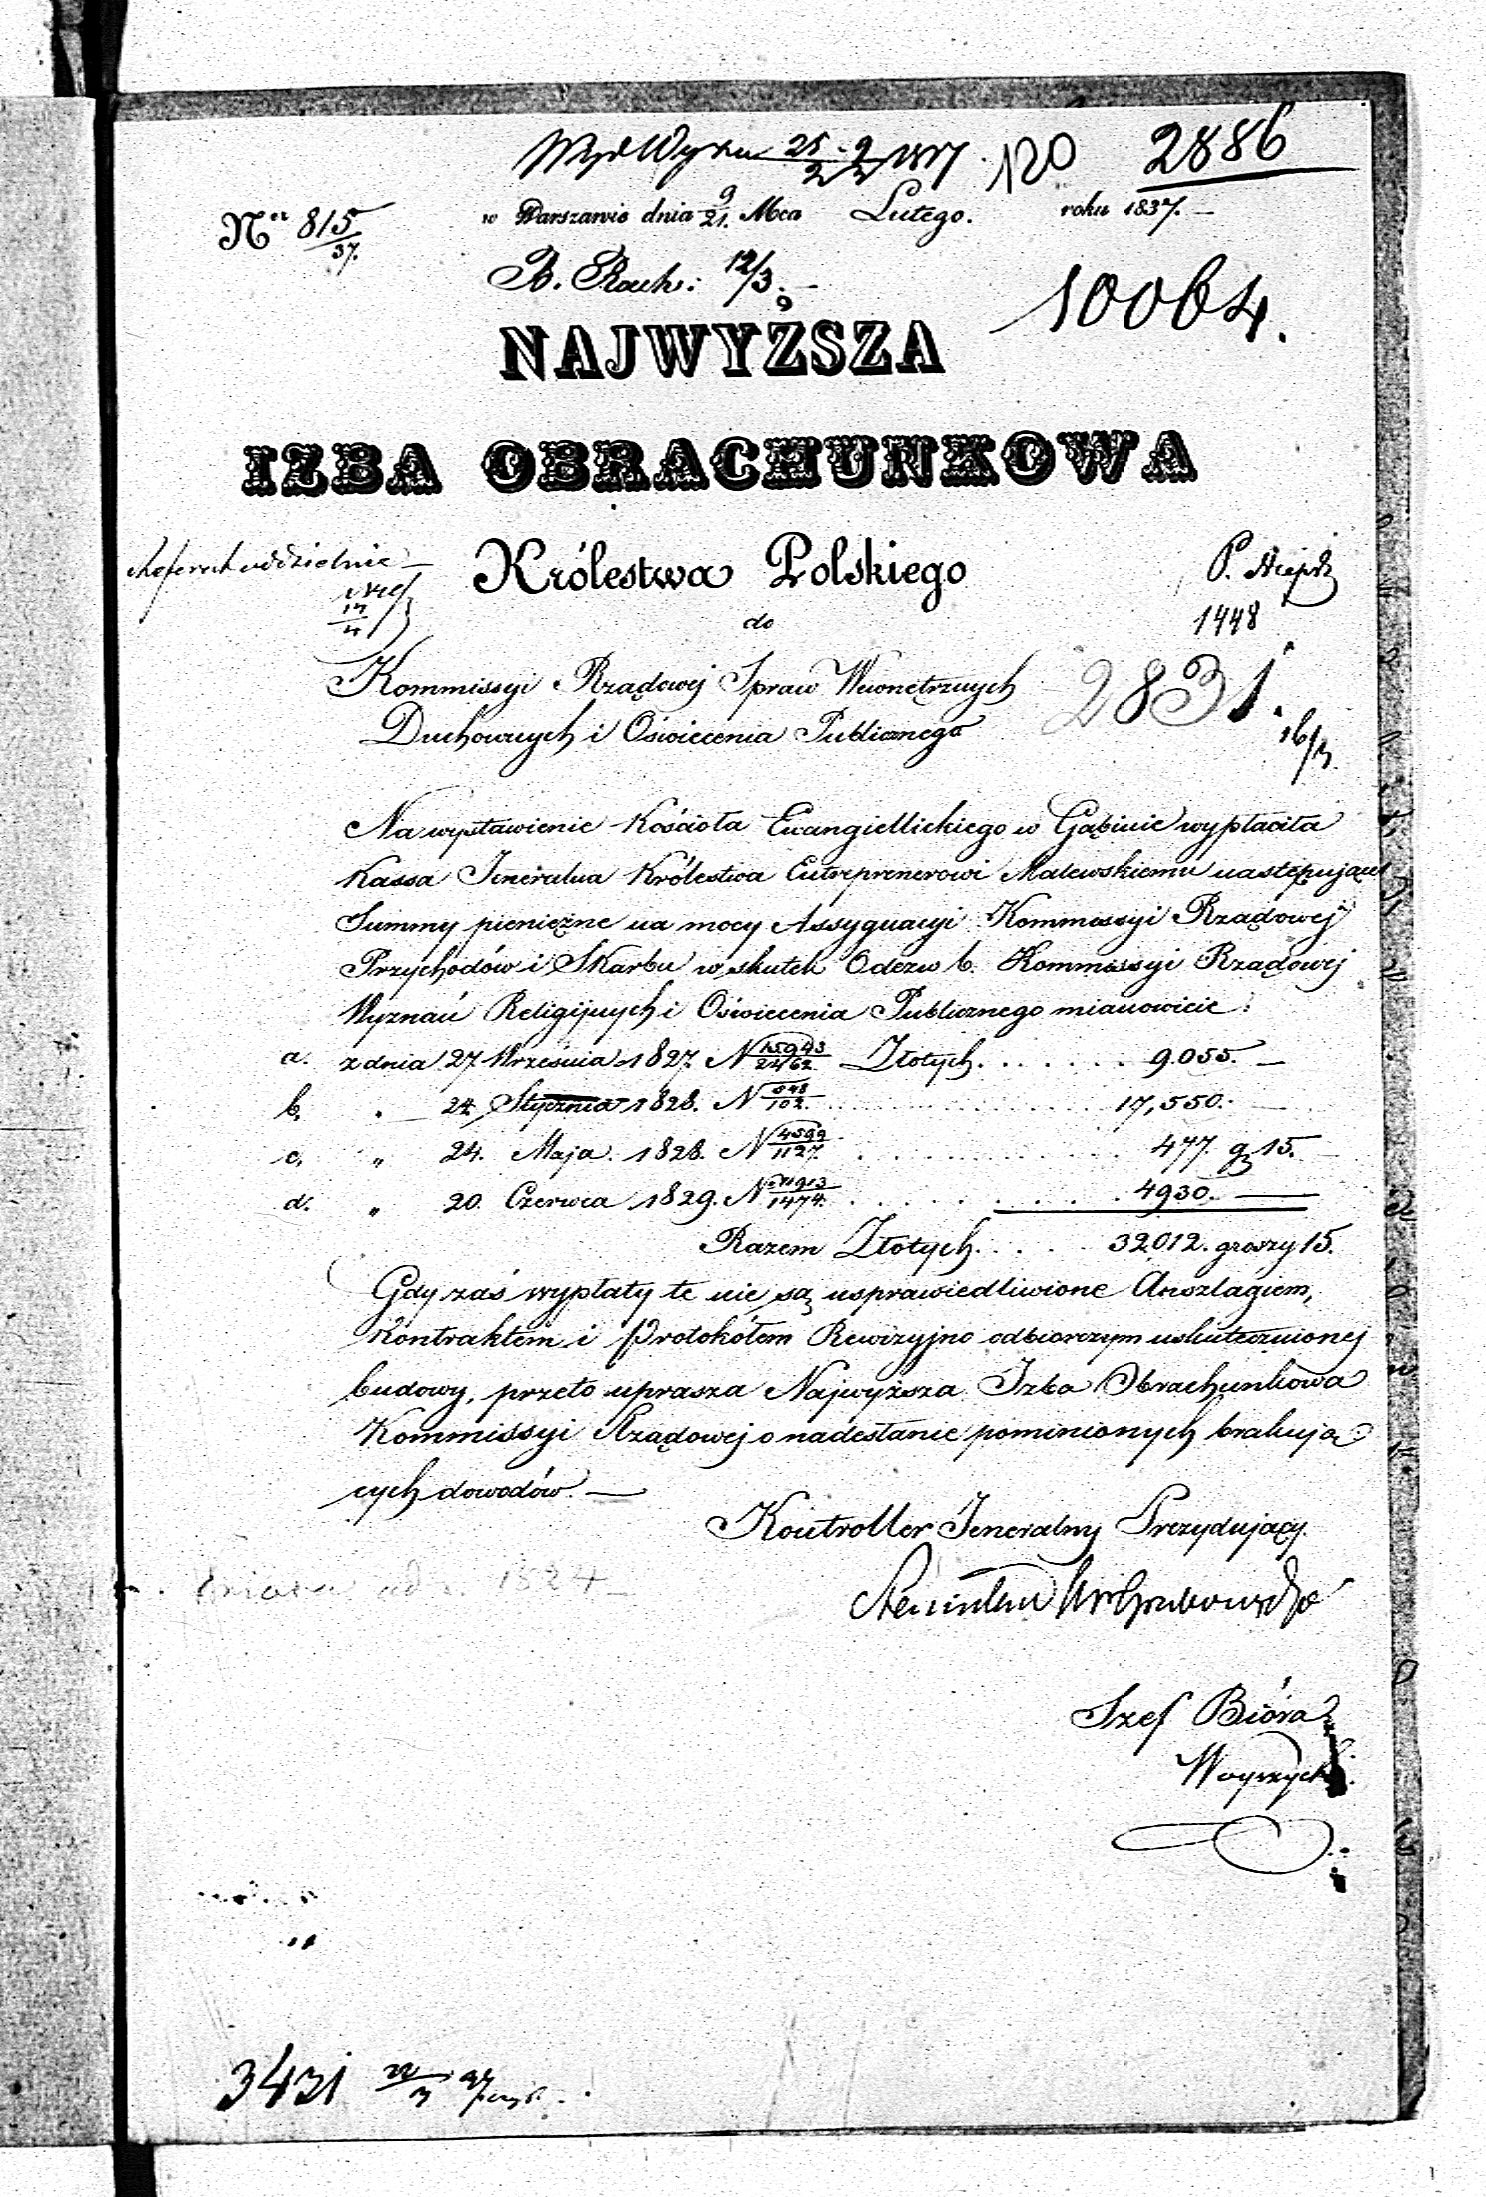 25 120 2886
No 815/37. w Warszawie dnia 9/21. Mca Lutego. roku 1837. —
B. Rach: 12/3. —
10064.
NAJWYŻSZA
IZBA OBRACHUNKOWA
Królestwa Polskiego
Referent oddzielnie —
P.
1448
do
Kommissyi Rządowej Spraw Wewnętrznych
2831.
Duchownych i Oświecenia Publicznego
16/3.
Na wystawienie Kościoła Ewangiellickiego w Gąbinie wypłaciła
Kassa Jeneralna Królestwa Entreprenerowi Malewskiemu następujące
Summy pieniężne na mocy Assygnacyi Kommissyi Rządowej
Przychodów i Skarbu w skutek Odezw b. Kommissyi Rządowej
Wyznań Religijnych i Oświecenia Publicznego mianowicie:
a. z dnia 27. Września 1827. N 15943/2462 Złotych. . . . . . . 9.055. —
b. „ 24 Stycznia 1828. N 548/102. . . . . . . 17,550. —
c. „ 24. Maja. 1828. N 4599/1127. . . . . . . 477. g 15. —
d. „ 20. Czerwca 1829. N 11913/1474. . . . . . . 4930. —
Razem Złotych. . . . . 32012. groszy 15.
Gdy zaś wypłaty te nie są usprawiedliwione Anszlagiem,
Kontraktem i Protokółem Rewizyjno odbiorczym uskutecznionej
budowy, przeto uprasza Najwyższa Izba Obrachunkowa
Kommissyi Rządowej o nadesłanie pominionych brakują-
cych dowodów. —
Kontroller Jeneralny Prezydujący.
1824 —
Szef Bióra
Woyzycki.
3431 22/3 37